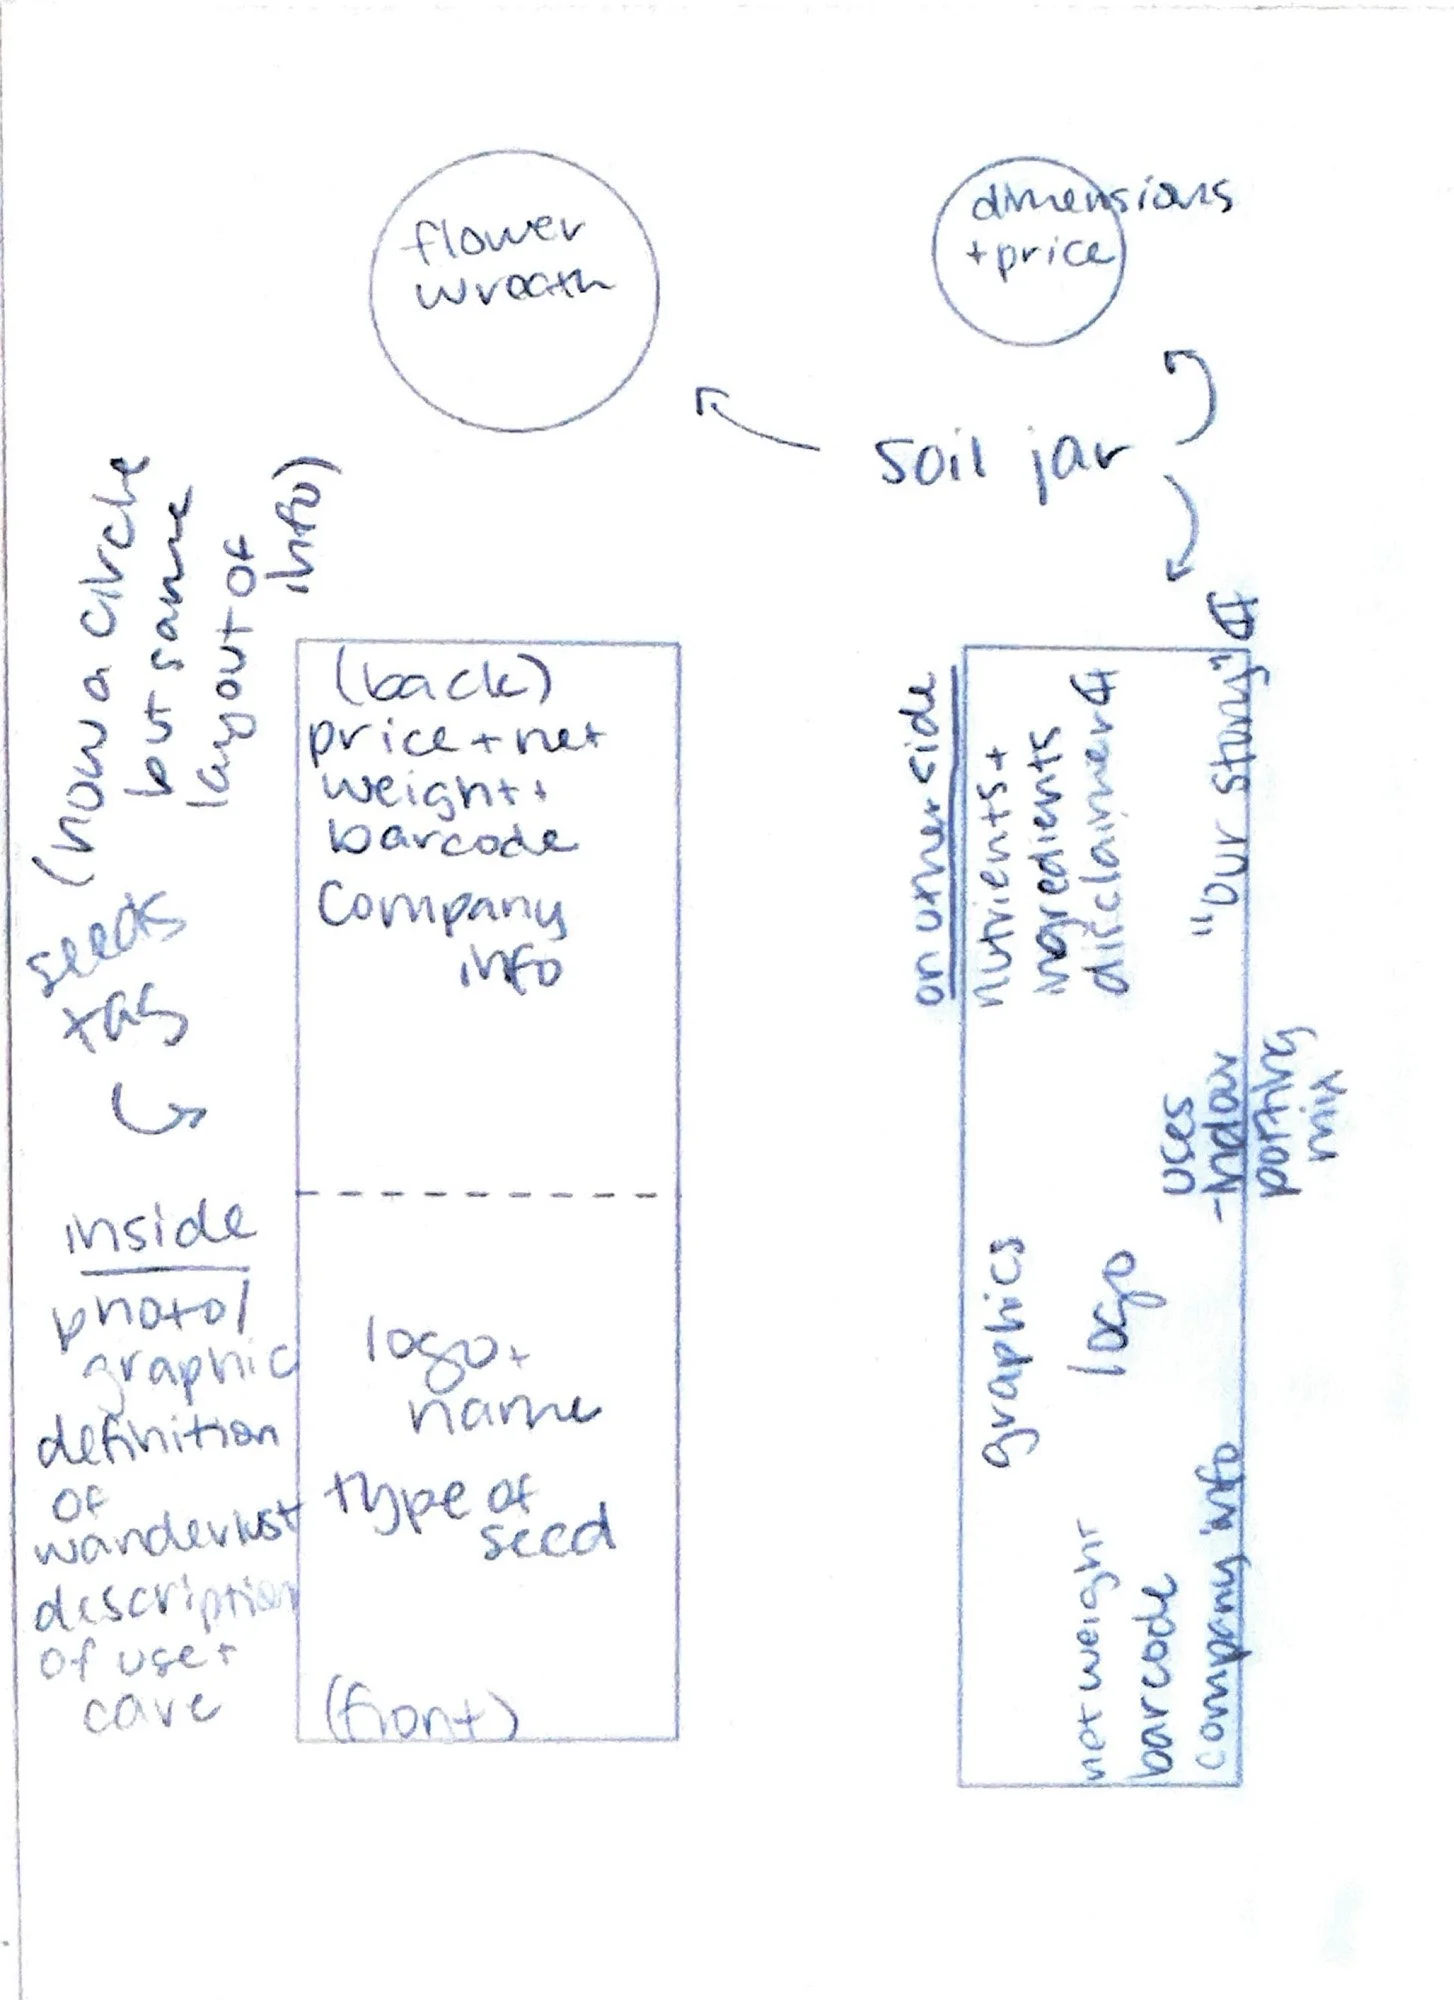 flower
wreath
dimensions
+price
soil jar
(now a circle
but same
layout of
info)
seeds
tag
(back)
price + net
weight +
barcode
Company
info
inside
photo/
graphic
definition
of
wanderlust
description
of use +
care
logo +
name
type of
seed
(front)
on other side
nutrients +
ingredients
disclaimer
"our story"
uses
-indoor
potting
mix
graphics
logo
net weight
barcode
company info